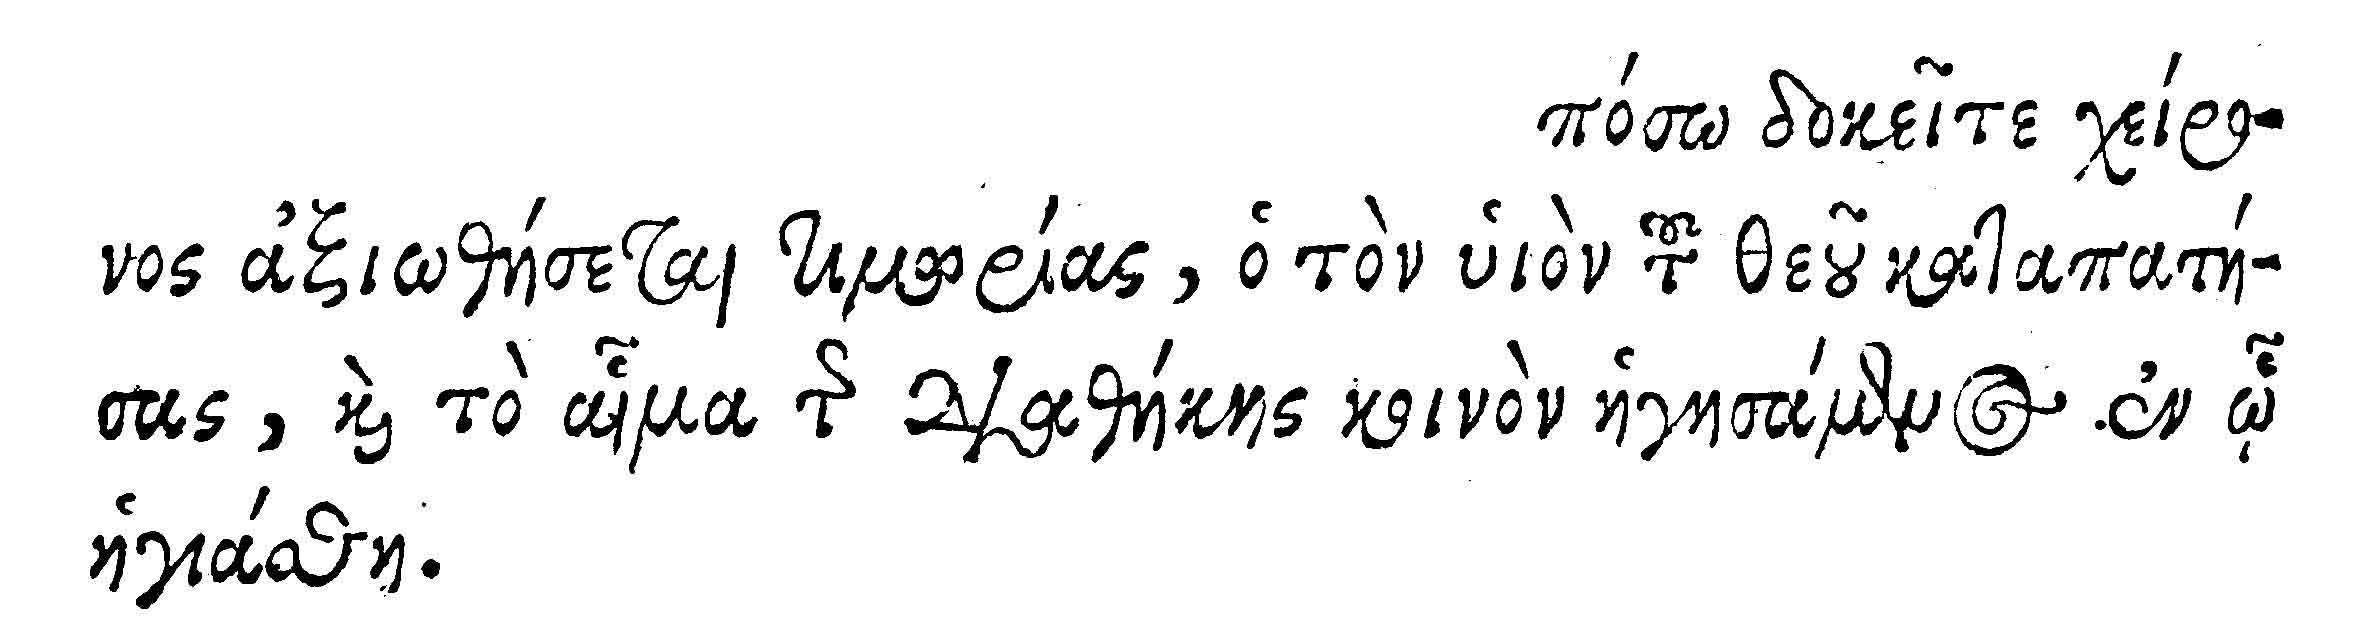 πόσω δοκεῖτε χείρο-
νος ἀξιωθήσεται τιμωρίας, ὁ τὸν υἱὸν τοῦ θεοῦ καταπατή-
σας, καὶ τὸ αἷμα τῆς διαθήκης κοινὸν ἡγησάμενος ἐν ᾧ
ἡγιάσθη.